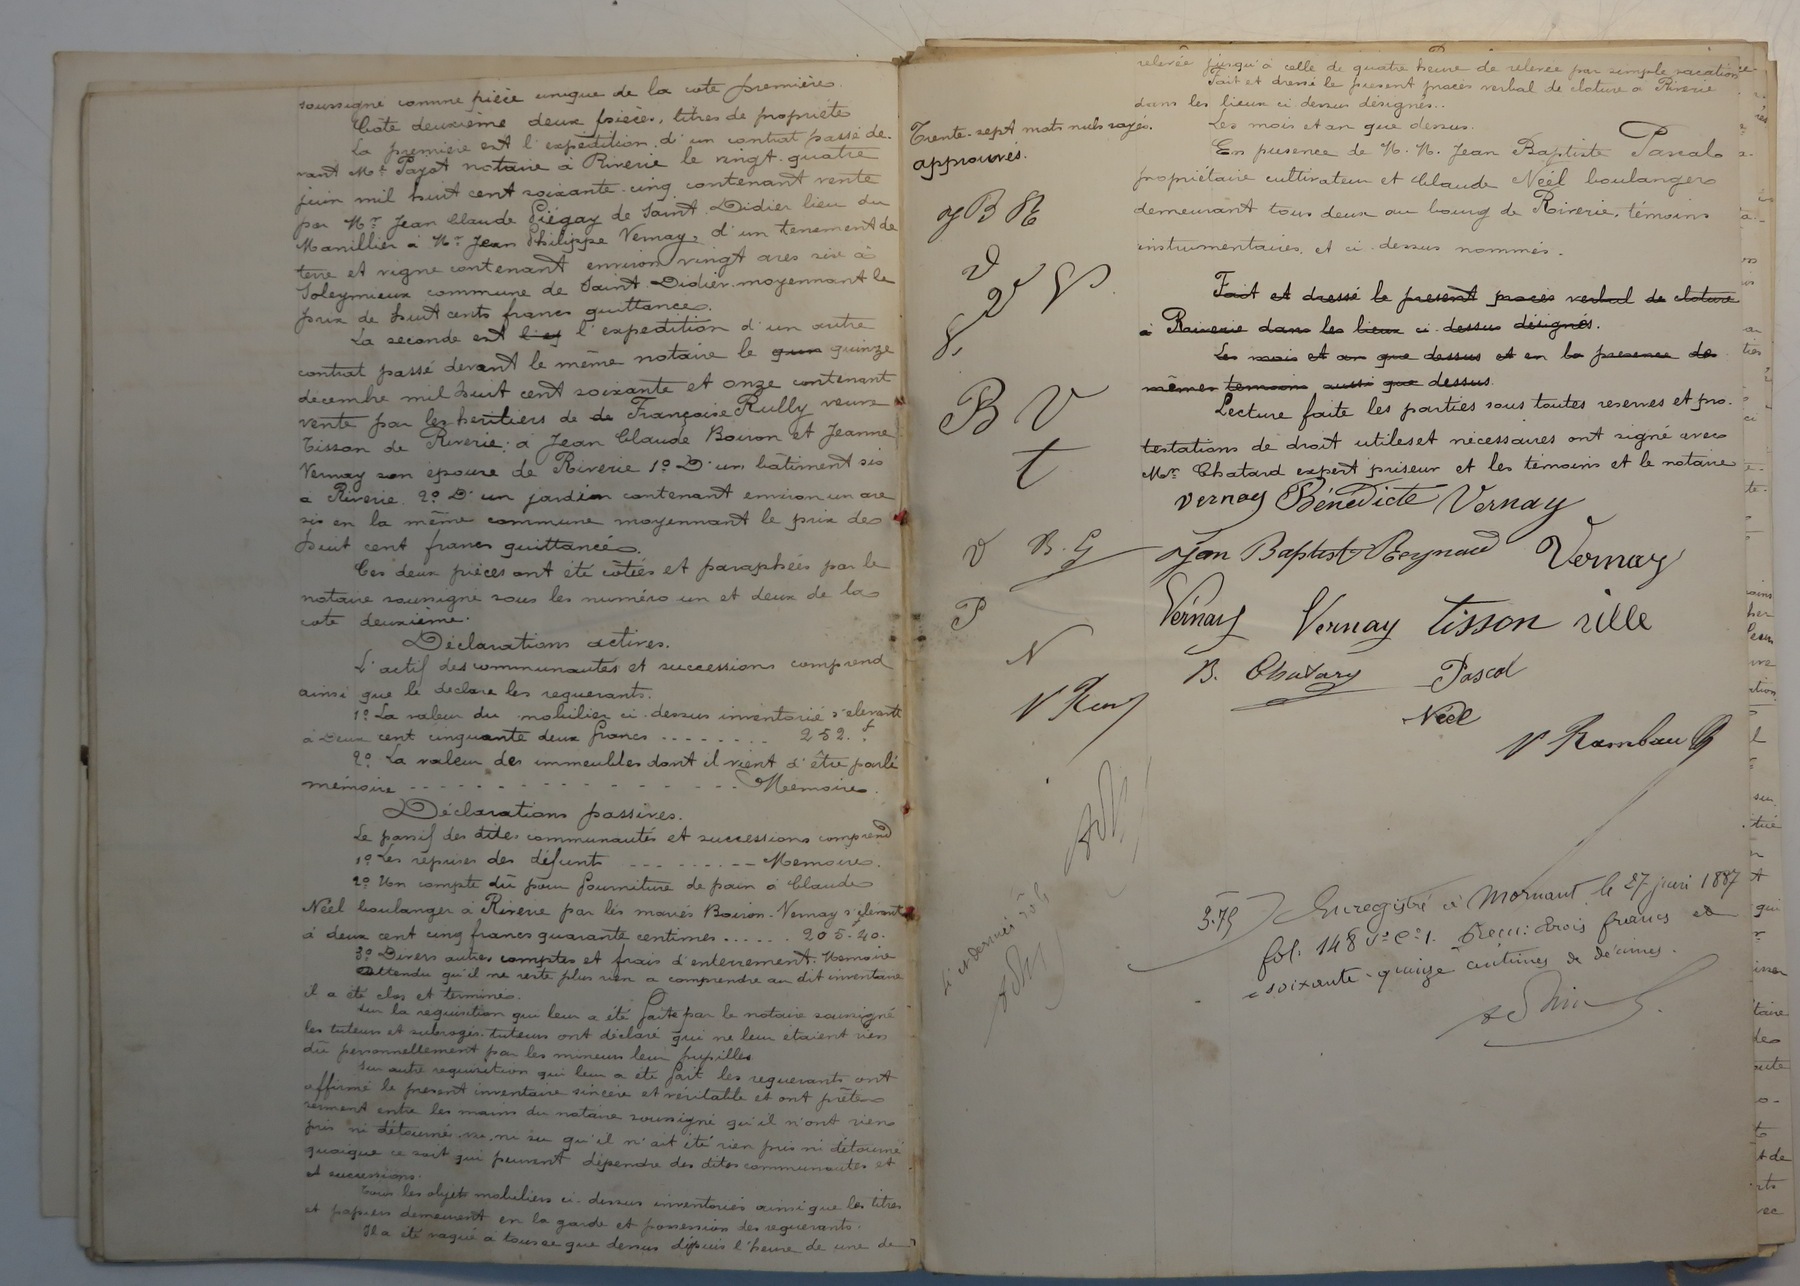 soussigné comme pièce unique de la cote première.
Cote deuxième deux pièces, titres de propriété
La première est l'expédition d'un contrat passé de-
vant Me Payot notaire à Riverie le vingt-quatre
juin mil huit cent soixante-cinq contenant vente
par Mr Jean Claude Piégay de Saint-Didier lieu du
Manillier à Mr Jean Philippe Vernay, d'un tènement de
terre et vigne contenant environ vingt ares sise à
Soleymieux commune de Saint-Didier moyennant le
prix de huit cents francs quittancé.
La seconde est l'expédition d'un autre
contrat passé devant le même notaire le quinze
décembre mil huit cent soixante et onze contenant
vente par les héritiers de de Françoise Rully veuve
Tisson de Riverie, à Jean Claude Boiron et Jeanne
Vernay son épouse de Riverie 1º D'un bâtiment sis
à Riverie. 2º D'un jardin contenant environ un are
sis en la même commune moyennant le prix de
huit cent francs quittancés.
Ces deux pièces ont été côtées et paraphées par le
notaire soussigné sous les numéro un et deux de la
cote deuxième.
Déclarations actives.
L'actif des communautés et successions comprend
ainsi que le déclare les requérants.
1º La valeur du mobilier ci-dessus inventorié s'élevant
à Deux cent cinquante deux francs ........ 252. f
2º La valeur des immeubles dont il vient d'être parlé
mémoire - - - - - - - - - - Mémoire.
Déclarations passives.
Le passif des dites communautés et successions comprend
1º Les reprises des défunts - - - - - - Mémoire.
2º Un compte dû pour fourniture de pain à Claude
Néel boulanger à Riverie par les mariés Boiron-Vernay s'élevant
à deux cent cinq francs quarante centimes ..... 205.40.
3º Divers autres comptes et frais d'enterrement. Mémoire
Attendu qu'il ne reste plus rien a comprendre au dit inventaire
il a été clos et terminé.
Sur la réquisition qui leur a été faite par le notaire soussigné
les tuteurs et subrogés-tuteurs ont déclaré qui ne leur étaient rien
dû personnellement par les mineurs leur pupilles.
Sur autre requisition qui leur a été fait les requerants ont
affirmé le présent inventaire sincère et véritable et ont prêté
serment entre les mains du notaire soussigné qu'il n'ont rien
pris ni détourné, vu, ni su qu'il n'ait été rien pris ni détourné
quoique ce soit qui peuvent dépendre des dites communautés et
et successions.
Tous les objets mobiliers ci-dessus inventoriés ainsi que les titres
et papiers demeurent en la garde et possession des requérants.
Il a été vaqué à tous ce que dessus depuis l'heure de une de
relevée jusqu'à celle de quatre heure de relevée par simple vacation
Fait et dressé le présent procès verbal de cloture à Riverie
dans les lieux ci dessus désignés..
Les mois et an que dessus.
En présence de M. M. Jean Baptiste Pascal
propriétaire cultivateur et Claude Néel boulanger
demeurant tous deux au bourg de Riverie, témoins
instrumentaires, et ci-dessus nommés.
Fait et dressé le présent procès verbal de cloture
à Raiverie dans les lieux ci-dessus désignés.
Les mois et an que dessus et en la présence des
mêmes temoins aussi que dessus.
Lecture faite les parties sous toutes reserves et pro-
testations de droit utiles et nécessaires ont signé avec
Mr Chatard expert priseur et les témoins et le notaire
Trente-sept mots nuls rayés.
approuvés.
J B R
V
V V
B V
t
V B. G
P
N
vernay Bénédicte Vernay
Jean Baptist Reynaud Vernay
Vernay Vernay tisson rille
B. Chatard Pascal
Néel
V Rambaud
3.75
Enregistré à Mornant, le 27 juin 1887
fol. 148 Vº Cº 1. Reçu: trois francs et
soixante-quinze centimes de décimes.